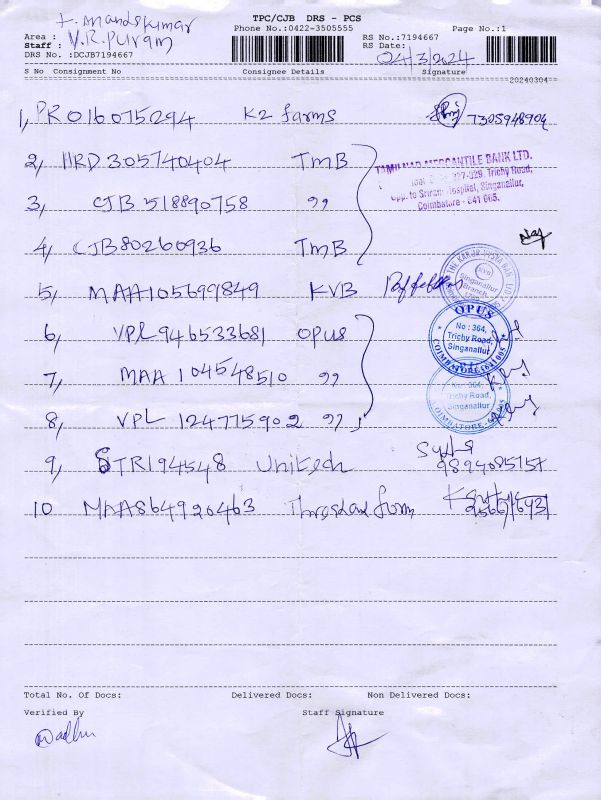 TPC/CJB DRS - PCS
Phone No.:0422-3505555 Page No.:1
Area : V.R.Puram
Staff :
DRS No. :DCJB7194667
RS No.:7194667
RS Date: 04/3/2024
S No Consignment No Consignee Details Signature
20240304
1, PRO16075294 K2 farms 7305948904
2, HRD305740404 TMB
TAMILNAD MERCANTILE BANK LTD.
327-329, Trichy Road,
Opp. to Sriram Hospital, Singanallur,
Coimbatore - 641 005.
3, CJB518890758 "
4, CJB80260936 TMB
5, MAA105699849 KVB
THE KARUR VYSYA BANK LTD
KVB
Singanallur
Branch
6, VPL946533681 opus
OPUS
No : 364,
Trichy Road,
Singanallur
COIMBATORE-641 005
7, MAA 104548510 "
8, VPL 124775902 "
No : 364,
Trichy Road,
Singanallur
COIMBATORE-641 005
9, STR194548 Unitech 9894085757
10 MAA864920463
Total No. Of Docs: Delivered Docs: Non Delivered Docs:
Verified By Staff Signature